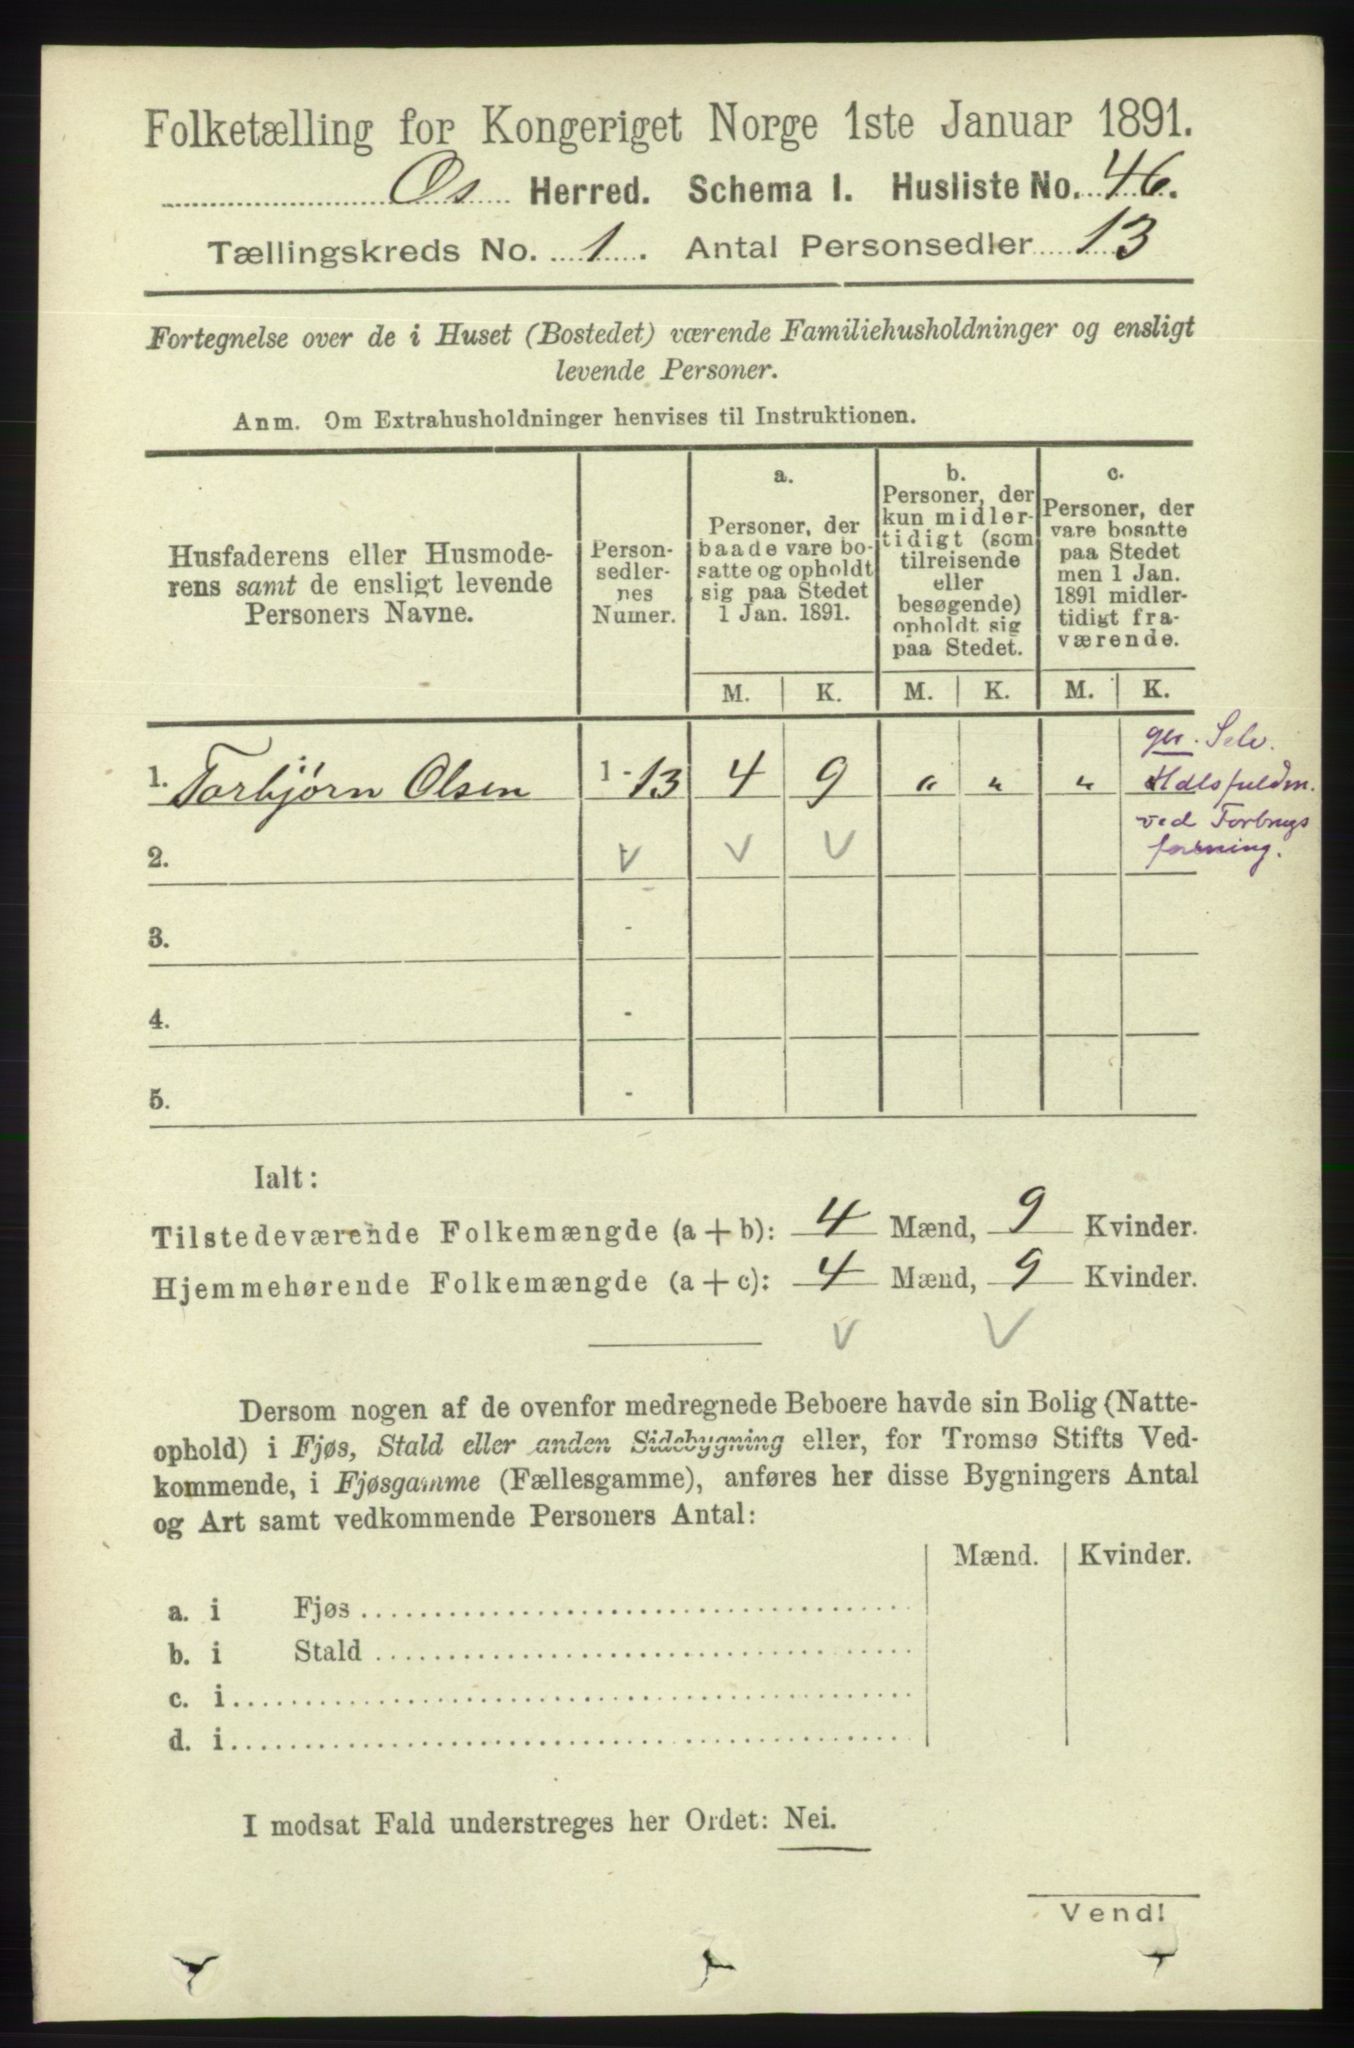 Folketælling for Kongeriget Norge 1ste Januar 1891.
Os Herred. Schema I. Husliste No. 46.
Tællingskreds No. 1. Antal Personsedler 13
Fortegnelse over de i Huset (Bostedet) værende Familiehusholdninger og ensligt
levende Personer.
Anm. Om Extrahusholdninger henvises til Instruktionen.
Husfaderens eller Husmode-
rens samt de ensligt levende
Personers Navne.
Person-
sedler-
nes
Numer.
a.
Personer, der
baade vare bo-
satte og opholdt
sig paa Stedet
1 Jan. 1891.
b.
Personer, der
kun midler-
tidigt (som
tilreisende
eller
besøgende)
opholdt sig
paa Stedet.
c.
Personer, der
vare bosatte
paa Stedet
men 1 Jan.
1891 midler-
tidigt fra-
værende.
M. K. M. K. M. K.
1. Torbjørn Olsen 1-13 4 9 " " "
Selv.
ved Forbrugs
forening.
2.
3. -
4. -
5. -
Ialt:
Tilstedeværende Folkemængde (a + b): 4 Mænd, 9 Kvinder.
Hjemmehørende Folkemængde (a + c): 4 Mænd, 9 Kvinder.
Dersom nogen af de ovenfor medregnede Beboere havde sin Bolig (Natte-
ophold) i Fjøs, Stald eller anden Sidebygning eller, for Tromsø Stifts Ved-
kommende, i Fjøsgamme (Fællesgamme), anføres her disse Bygningers Antal
og Art samt vedkommende Personers Antal:
Mænd. Kvinder.
a. i Fjøs
b. i Stald
c. i
d. i
I modsat Fald understreges her Ordet: Nei.
Vend!